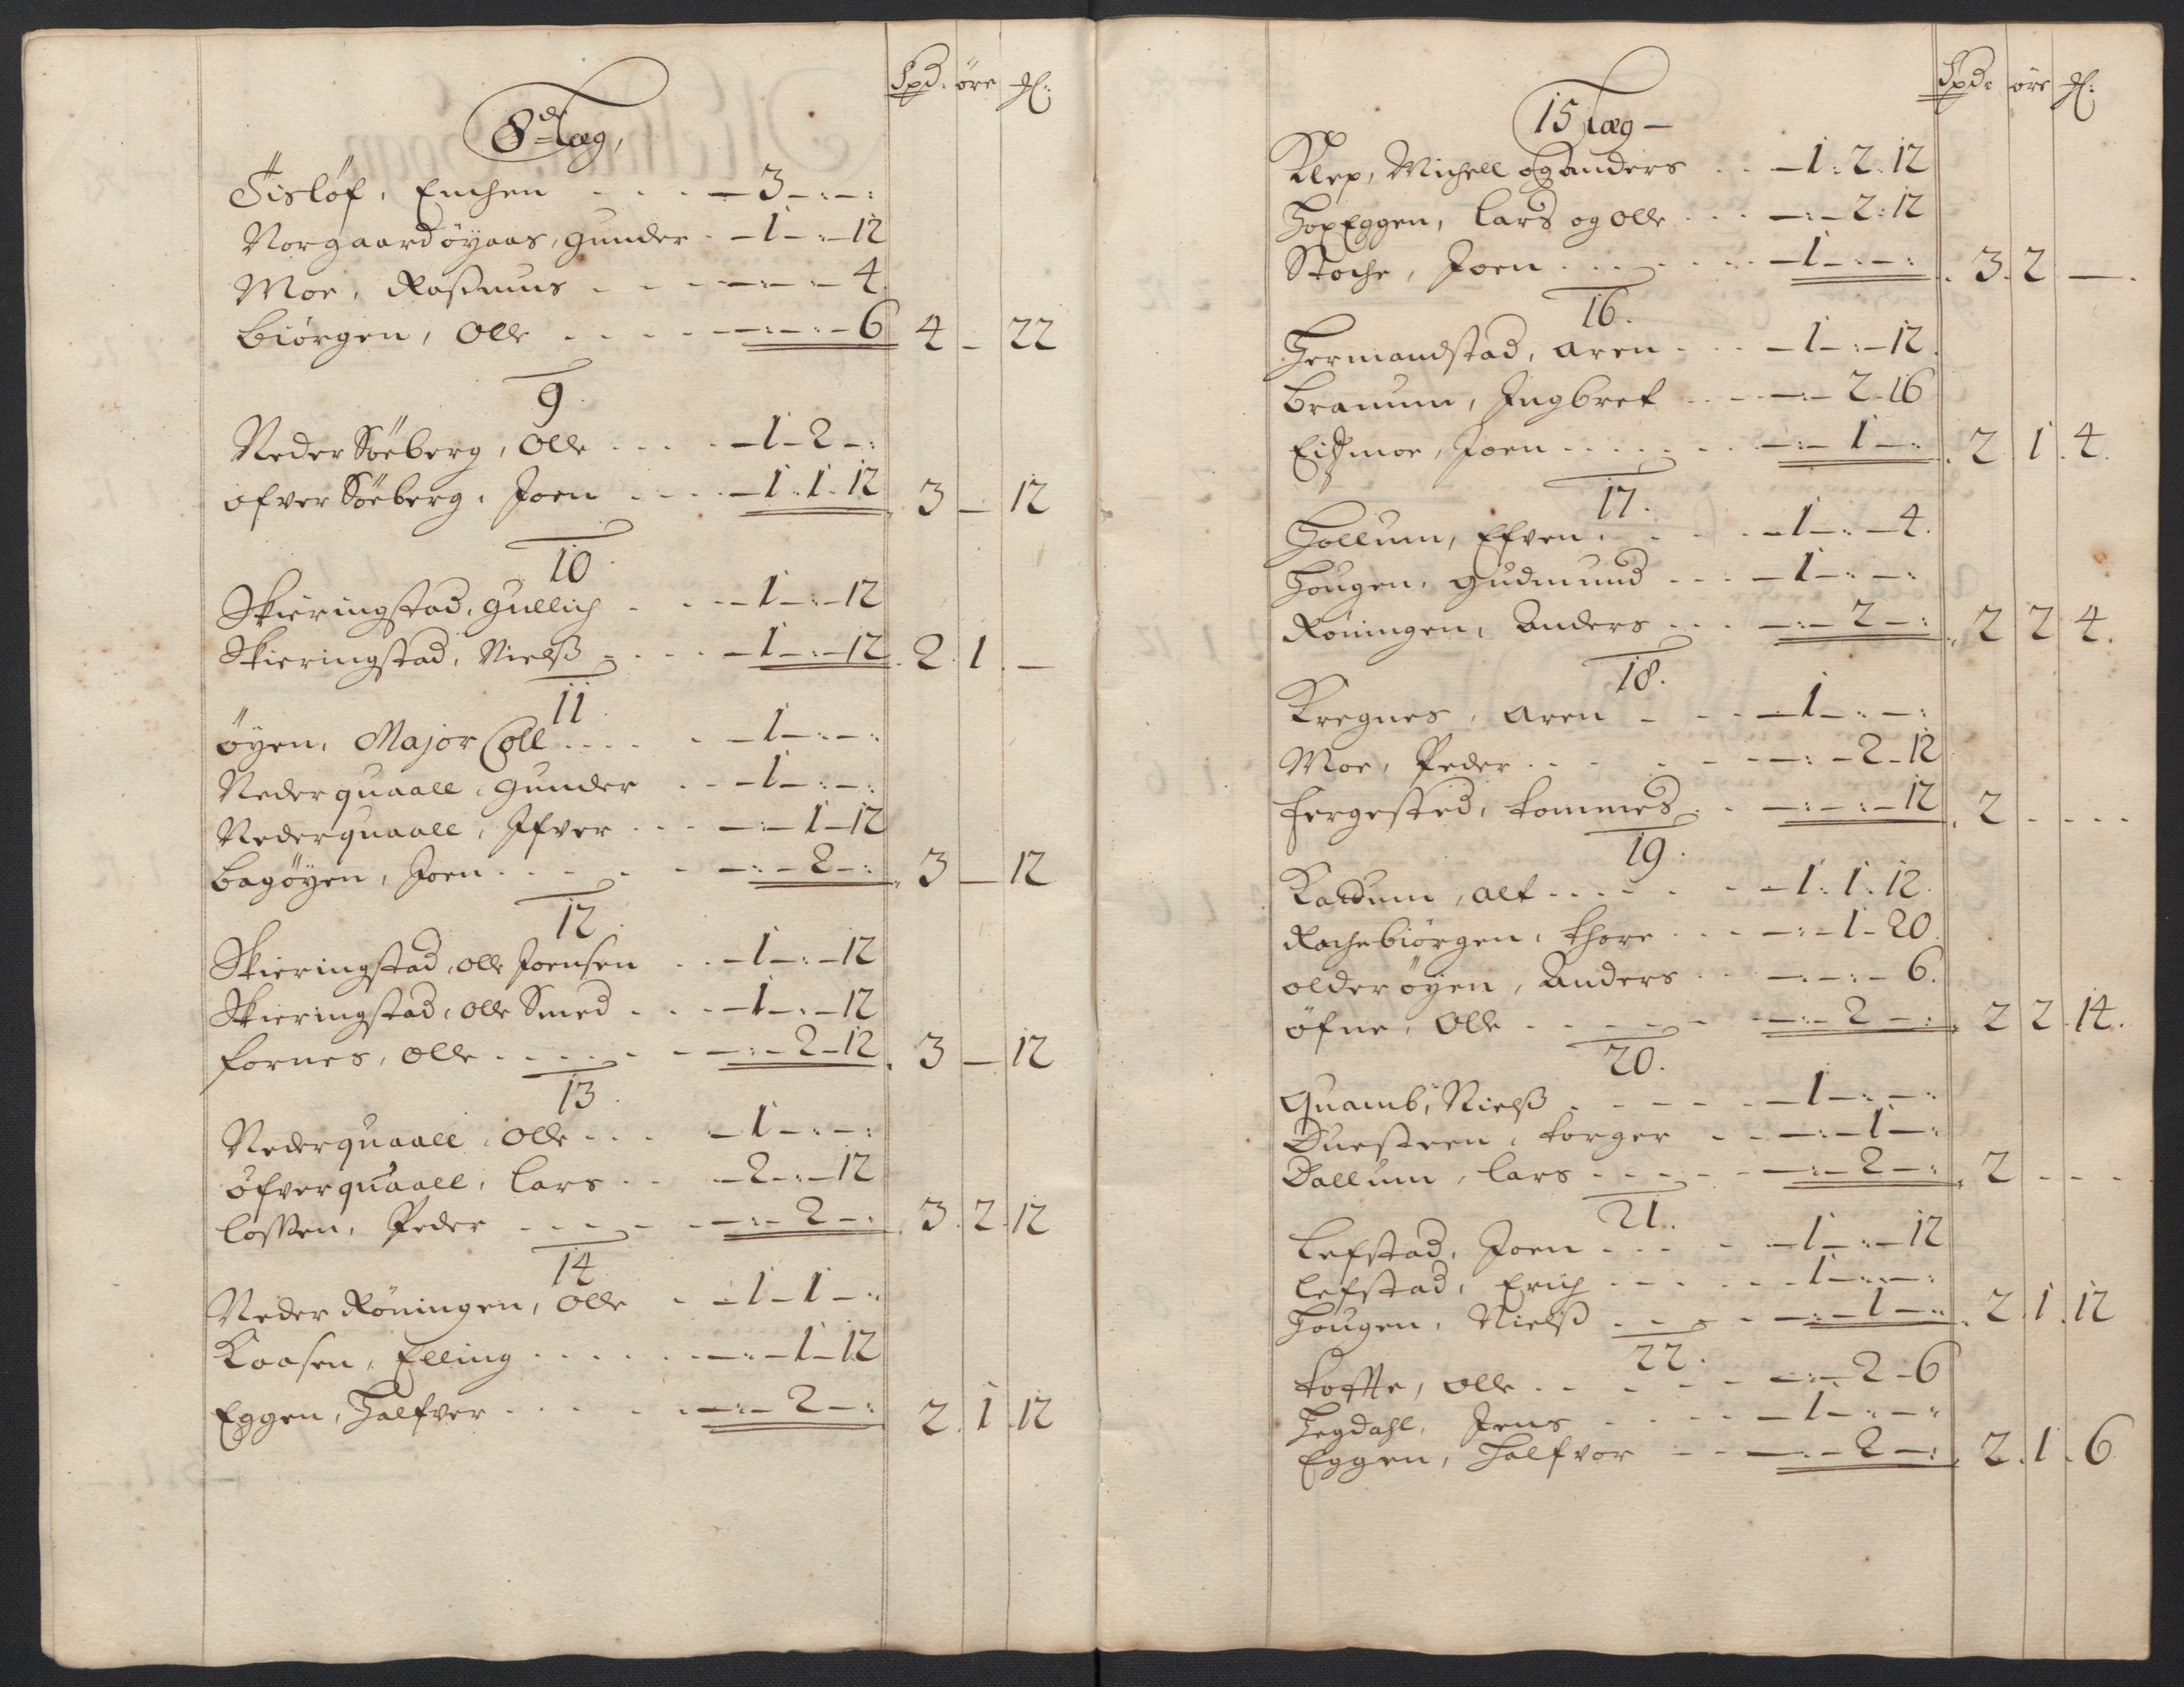 Spd: öre
8de Læg,
Fislöf, Enchen - - - - 3 - : - :
Norgaardöÿaas, Gunder - - 1 - : - 12
Moe, Rasmus - - - - : - : - 4
Biörgen, Olle - - - - : - : - 6 4 - 22
9.
Neder Söeberg, Olle - - - - 1 - 2 - :
ofver Söeberg, Joen - - - - 1 . 1 . 12 3 - 12
10.
Skieringstad, Gullich - - - 1 - : - 12
Skieringstad, Nielß - - - - 1 - : - 12 . 2 . 1 . -
11.
öÿen, Major Coll . . . . - 1 - : - :
Nederquaall, Gunder - - 1 - : - :
Nederquaall, Ifver - - - : - 1 - 12
Bagöÿen, Joen - - - - - : - 2 - : 3 - 12
12.
Skieringstad, olle Joensen - - 1 - : - 12
Skieringstad, olle Smed - - - 1 - : - 12
fornes, olle - - - - - : - 2 - 12 3 - 12
13.
Nederquaall, olle - - - 1 - : - :
öfverquaall, Lars - - 2 - : - 12
Lossen, Peder - - - - : - 2 - : . 3 . 2 . 12
14.
Neder Röningen, olle - - 1 - 1 - :
Kaasen, Elling - - - - - : - 1 - 12
Eggen, Halfver - - - - : - 2 - : 2 . 1 . 12
Spd: öre
15 Læg -
Klep, Michell og Anders - - 1 : 2 . 12
HopEggen, Lars og olle - - - : - 2 : 12
Stoche, Joen - - - - 1 - : - : . 3 . 2 - .
16.
Hermandstad, aren - - - 1 - : - 12.
Branum, Ingbret - - - : - 2 - 16
Eidsmoe, Joen - - - - : - 1 - : . 2 . 1 . 4.
17.
Hollum, Efven - - - 1 - : - 4.
Hougen, Gudmund - - - 1 - : - :
Röningen, Anders - - - : - 2 - : . 2 2 4.
18.
Kregnes, aren - - - 1 - : - :
Moe, Peder - - - - : - 2 - 12
fergestad, tommes - - : - : - 12 . 2 - - -
19.
Kaldum, alf - - - - 1 : 1 : 12.
Rachebiörgen, thore - - - : - 1 - 20.
olderöÿen, Anders - - : - : - 6.
öfne, olle - - - - : - 2 - : . 2 2 . 14.
20.
Quamb, Nielß - - - - 1 - : - :
Duesteen, torger - - - : - 1 - :
Dallum, Lars - - - - : - 2 - : . 2 - - -
21.
Lefstad, Joen - - - 1 - : - 12
Lefstad, Erich - - - - 1 - : - :
Hougen, Nielß - - - - : - 1 - : . 2 . 1 . 12
22.
tofte, olle - - - - : - 2 - 6
Hegdahl, Jens - - - 1 - : - :
Eggen, Halfvor - - - : - 2 - : . 2 . 1 . 6